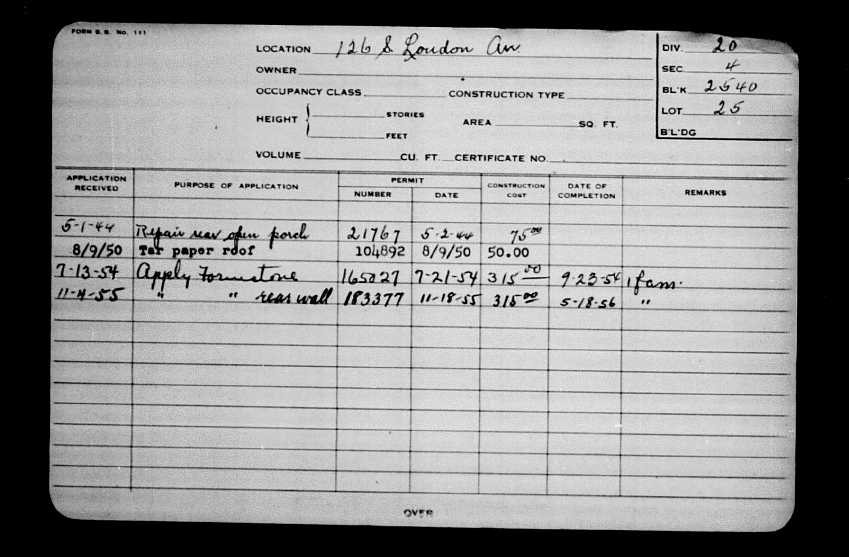 FORM B. B. No. 111
LOCATION 126 S Loudon Av.
OWNER
OCCUPANCY CLASS CONSTRUCTION TYPE
HEIGHT STORIES FEET AREA SQ. FT.
VOLUME CU. FT. CERTIFICATE NO.
DIV. 20
SEC. 4
BL'K 2540
LOT 25
B'L'DG
APPLICATION RECEIVED PURPOSE OF APPLICATION PERMIT NUMBER DATE CONSTRUCTION COST DATE OF COMPLETION REMARKS
5-1-44 Repair rear open porch 21767 5-2-44 75.00
8/9/50 Tar paper roof 104892 8/9/50 50.00
7-13-54 Apply Formstone 165027 7-21-54 315.00 9-23-54 1 fam.
11-4-55 " " rear wall 183377 11-18-55 315.00 5-18-56 "
OVER